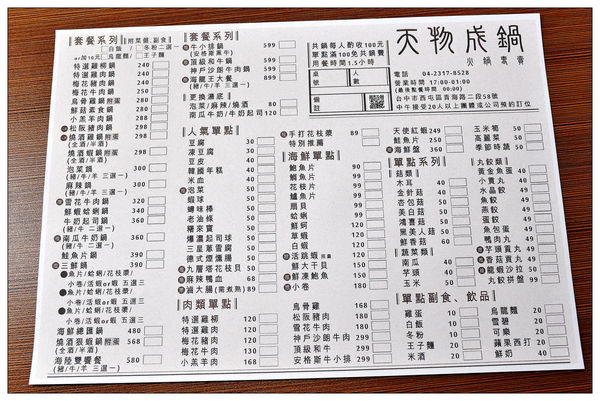 套餐系列 附菜盤,副食
白飯 / 冬粉二選一
or加10元 烏龍麵 / 王子麵
特選雞柳鍋 240
特選雞肉鍋 240
梅花肉鍋 240
梅花牛肉鍋 250
烏骨雞鍋附蛋 280
鮮菇素食鍋 260
小羔羊肉鍋 280
松阪豬肉鍋 280
燒酒雞鍋附蛋 280
(全酒/半酒)
燒酒蝦鍋附蛋 280
(全酒/半酒)
泡菜鍋 350
(豬/牛/羊 三選一)
麻辣鍋 350
(豬/牛/羊 三選一)
雪花牛肉鍋 350
鮮蝦蛤蜊鍋 350
牛奶起司鍋 360
(豬/牛 二選一)
南瓜牛奶鍋 360
(豬/牛 二選一)
鮭魚片鍋 390
三鮮鍋 390
●魚片/蛤蜊/花枝漿/
小卷/活蝦or蝦 五選三
●魚片/蛤蜊/花枝漿/
小卷/活蝦or蝦 五選三
海鮮總匯鍋 480
燒酒狠蝦鍋附蛋 568
(全酒/半酒)
海陸雙饗餐 580
(豬/牛/羊 三選一)
套餐系列
牛小排鍋 599
(安格斯黑牛)
頂級和牛鍋 599
神戶沙朗牛肉鍋 599
海龍王大餐 699
(豬/牛/羊 三選一)
更換湯底
泡菜/麻辣/燒酒 80
南瓜牛奶/牛奶起司 120
人氣單點
豆腐 30
凍豆腐 30
豆皮 30
韓國年糕 30
米血 30
泡菜 50
蝦球 50
蟳味棒 50
老油條 50
糯來寶 50
爆濃起司球 50
三星蔥雪腐 50
德式煙燻腸 50
九層塔花枝貝 50
麻辣鴨血 168
滷大腸(需煮熟) 89
肉類單點
特選雞柳 120
特選雞肉 120
梅花豬肉 120
梅花牛肉 130
小羔羊肉 168
共鍋每人酌收100元
單點滿100免共鍋費
用餐時間1.5小時
桌號
人數
備註
天物成鍋
火鍋専賣
電話 04-2317-8528
營業時間 17:00-01:00
(最後點餐時間 00:00)
台中市西屯區青海路二段58號
中午接受20人以上團體或公司預約訂位
手打花枝漿 89
特別推薦
海鮮單點
鮑魚片 90
鯛魚片 90
花枝片 90
鱸魚片 90
扇貝 90
蛤蜊 90
鮮蚵 90
草蝦 90
白蝦 90
活跳蝦 120
鮮大干貝 150
鮮凍鮑魚 150
小卷 180
烏骨雞 168
松阪豬肉 180
雪花牛肉 180
神戶沙朗牛肉 299
頂級和牛 299
安格斯牛小排 299
天使紅蝦 249
鮭魚片 250
海鮮盤 360
單點系列
菇類
木耳 40
金針菇 40
杏包菇 50
美白菇 50
鴻喜菇 50
黑美人菇 50
鮮香菇 60
蔬菜類
南瓜 40
芋頭 40
玉米 40
玉米筍 50
高麗菜 50
季節時蔬 50
丸餃類
黃金魚蛋 40
小貢丸 40
水晶餃 40
魚餃 40
燕餃 40
蛋餃 40
魚包蛋 40
鴨肉丸 49
芋頭貢丸 49
香菇貢丸 49
龍蝦沙拉 50
丸餃拼盤 99
單點副食、飲品
雞蛋 10
白飯 10
冬粉 10
王子麵 20
米酒 20
烏龍麵 20
雪碧 20
可樂 20
蘋果西打 20
鮮奶 40